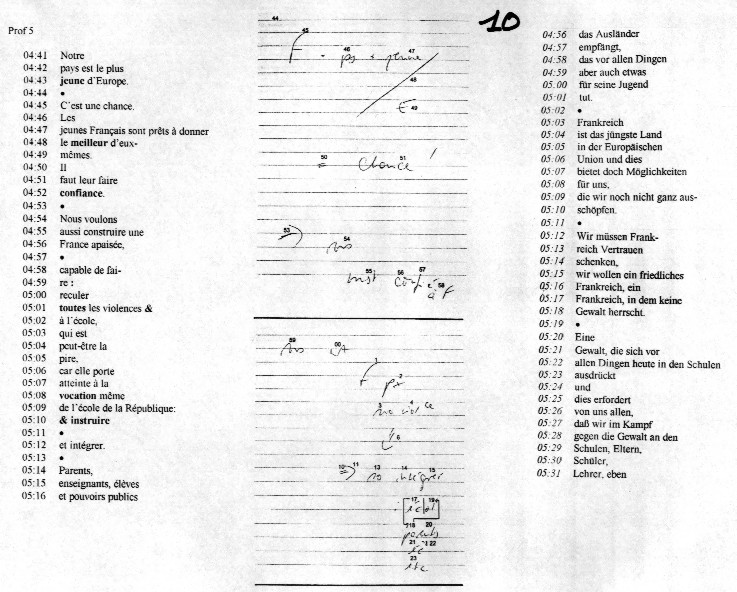 Prof 5
04:41 Notre
04:42 pays est le plus
04:43 jeune d'Europe.
04:44 •
04:45 C'est une chance.
04:46 Les
04:47 jeunes Français sont prêts à donner
04:48 le meilleur d'eux-
04:49 mêmes.
04:50 Il
04:51 faut leur faire
04:52 confiance.
04:53 •
04:54 Nous voulons
04:55 aussi construire une
04:56 France apaisée,
04:57 •
04:58 capable de fai-
04:59 re :
05:00 reculer
05:01 toutes les violences &
05:02 à l'école,
05:03 qui est
05:04 peut-être la
05:05 pire,
05:06 car elle porte
05:07 atteinte à la
05:08 vocation même
05:09 de l'école de la République:
05:10 & instruire
05:11 •
05:12 et intégrer.
05:13 •
05:14 Parents,
05:15 enseignants, élèves
05:16 et pouvoirs publics
44
45
46 47
F
48
€ 49
50 51
= Chance !
53
54
55 56 57
58
à F
59
1
F
2
3 4
6
10 11 13 14 15
intégrer
17 19
18 20
21 22
23
10
04:56 das Ausländer
04:57 empfängt,
04:58 das vor allen Dingen
04:59 aber auch etwas
05:00 für seine Jugend
05:01 tut.
05:02 •
05:03 Frankreich
05:04 ist das jüngste Land
05:05 in der Europäischen
05:06 Union und dies
05:07 bietet doch Möglichkeiten
05:08 für uns,
05:09 die wir noch nicht ganz aus-
05:10 schöpfen.
05:11 •
05:12 Wir müssen Frank-
05:13 reich Vertrauen
05:14 schenken,
05:15 wir wollen ein friedliches
05:16 Frankreich, ein
05:17 Frankreich, in dem keine
05:18 Gewalt herrscht.
05:19 •
05:20 Eine
05:21 Gewalt, die sich vor
05:22 allen Dingen heute in den Schulen
05:23 ausdrückt
05:24 und
05:25 dies erfordert
05:26 von uns allen,
05:27 daß wir im Kampf
05:28 gegen die Gewalt an den
05:29 Schulen, Eltern,
05:30 Schüler,
05:31 Lehrer, eben